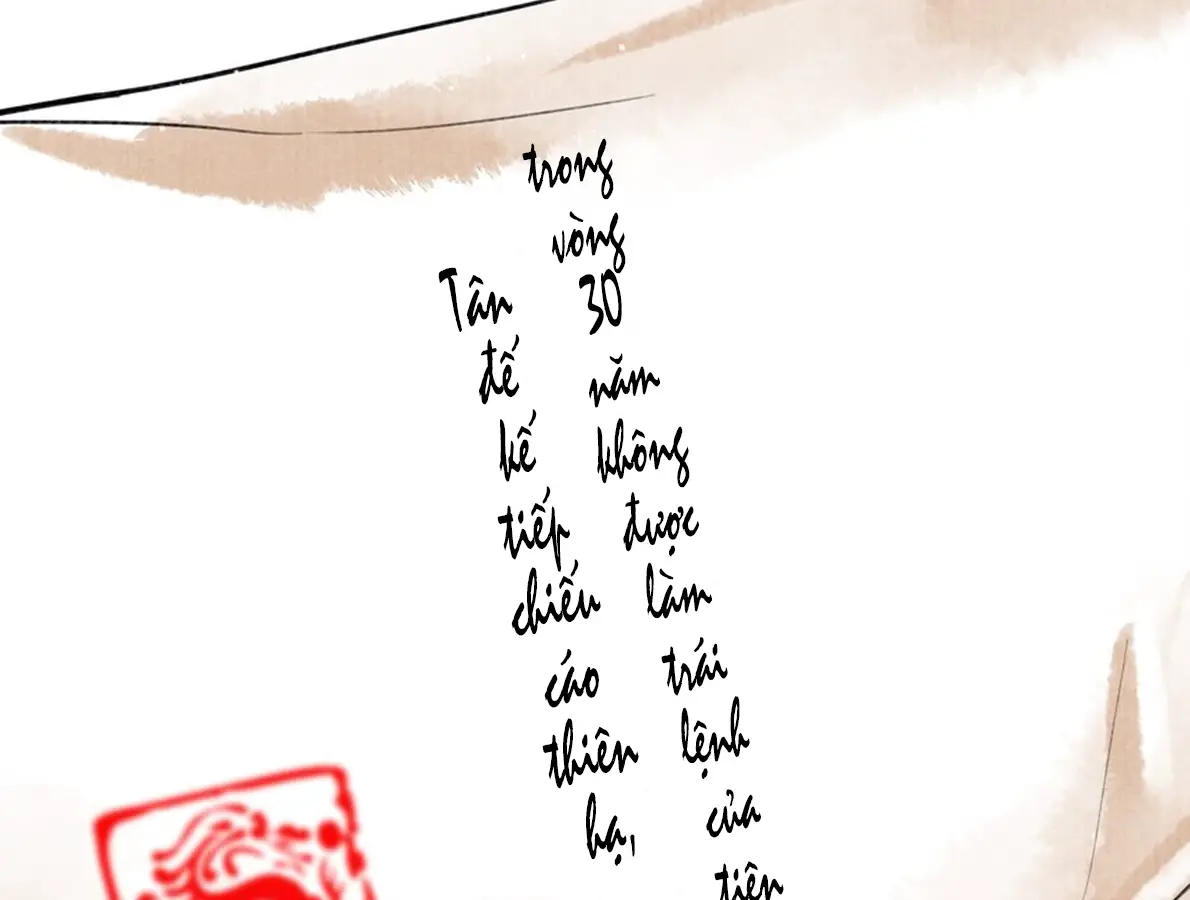 Tân đế kế tiếp chiếu cáo thiên hạ,
trong vòng 30 năm không được làm trái lệnh của tiên